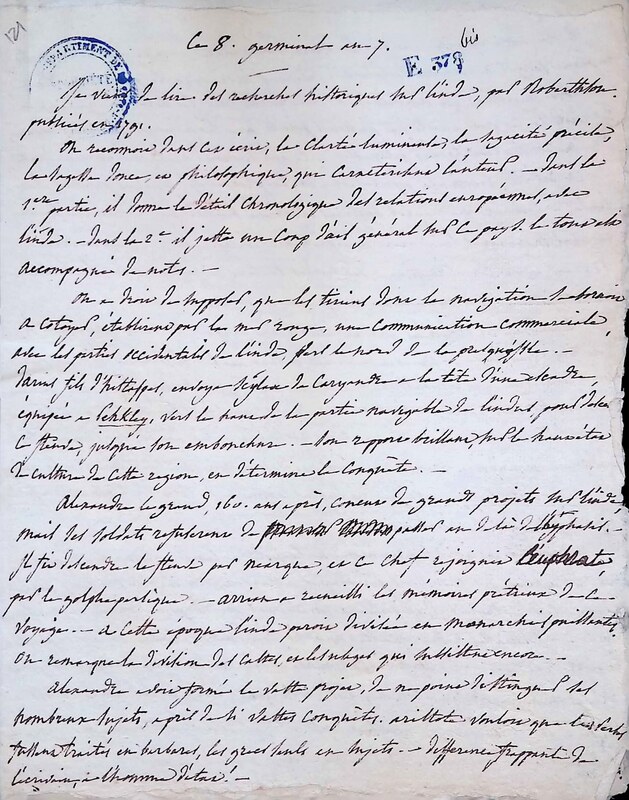 121
Ce 8. germinal an 7.
bis
E 378
Je viens de lire des recherches historiques sur l'inde, par Robertson.
publiés en 1791.
On reconnoit dans cet écrit, la clarté lumineuse, la sagacité précise,
la sagesse douce, et philosophique, qui caractérise l'auteur. — dans la
1.ere partie, il donne le détail chronologique des relations européennes, avec
l'inde. — dans la 2.e il jette un coup d'œil général sur ce pays. le tout est
accompagné de notes. —
On a droit de supposer, que les tiriens dont la navigation se bornoit
a cotoyer, établirent par la mer rouge, une communication commerciale,
avec les parties occidentales de l'inde, vers le nord de la presqu'isle. —
Darius fils d'histaspes, envoya Scylax de Caryandre a la tête d'une escadre,
équipée a vers le haut de la partie navigable de l'indus, pour descendre
ce fleuve, jusqu'à son embouchure. — son rapport brillant, sur le haut état
de culture de cette région, en détermina la conquête. —
Alexandre le grand, 160. ans après, conçut de grands projets sur l'inde
mais ses soldats refuserent de passer au de là de l'hyphasis. —
il fit descendre le fleuve par nearque, et ce chef rejoignit l'euphrate,
par le golphe persique. — arrien a recueilli les mémoires prétieux de ce
voyage. — a cette époque l'inde paroit divisée en monarchies puissantes,
on remarque la division des castes, et les usages qui subsistent encore. —
Alexandre avoit formé le vaste projet, de ne point distinguer ses
nombreux sujets, après de si vastes conquêtes. aristote vouloit que les Perses
fussent traités en barbares, les grecs seuls en sujets. — différence frappante de
l'écrivain, à l'homme d'état! —